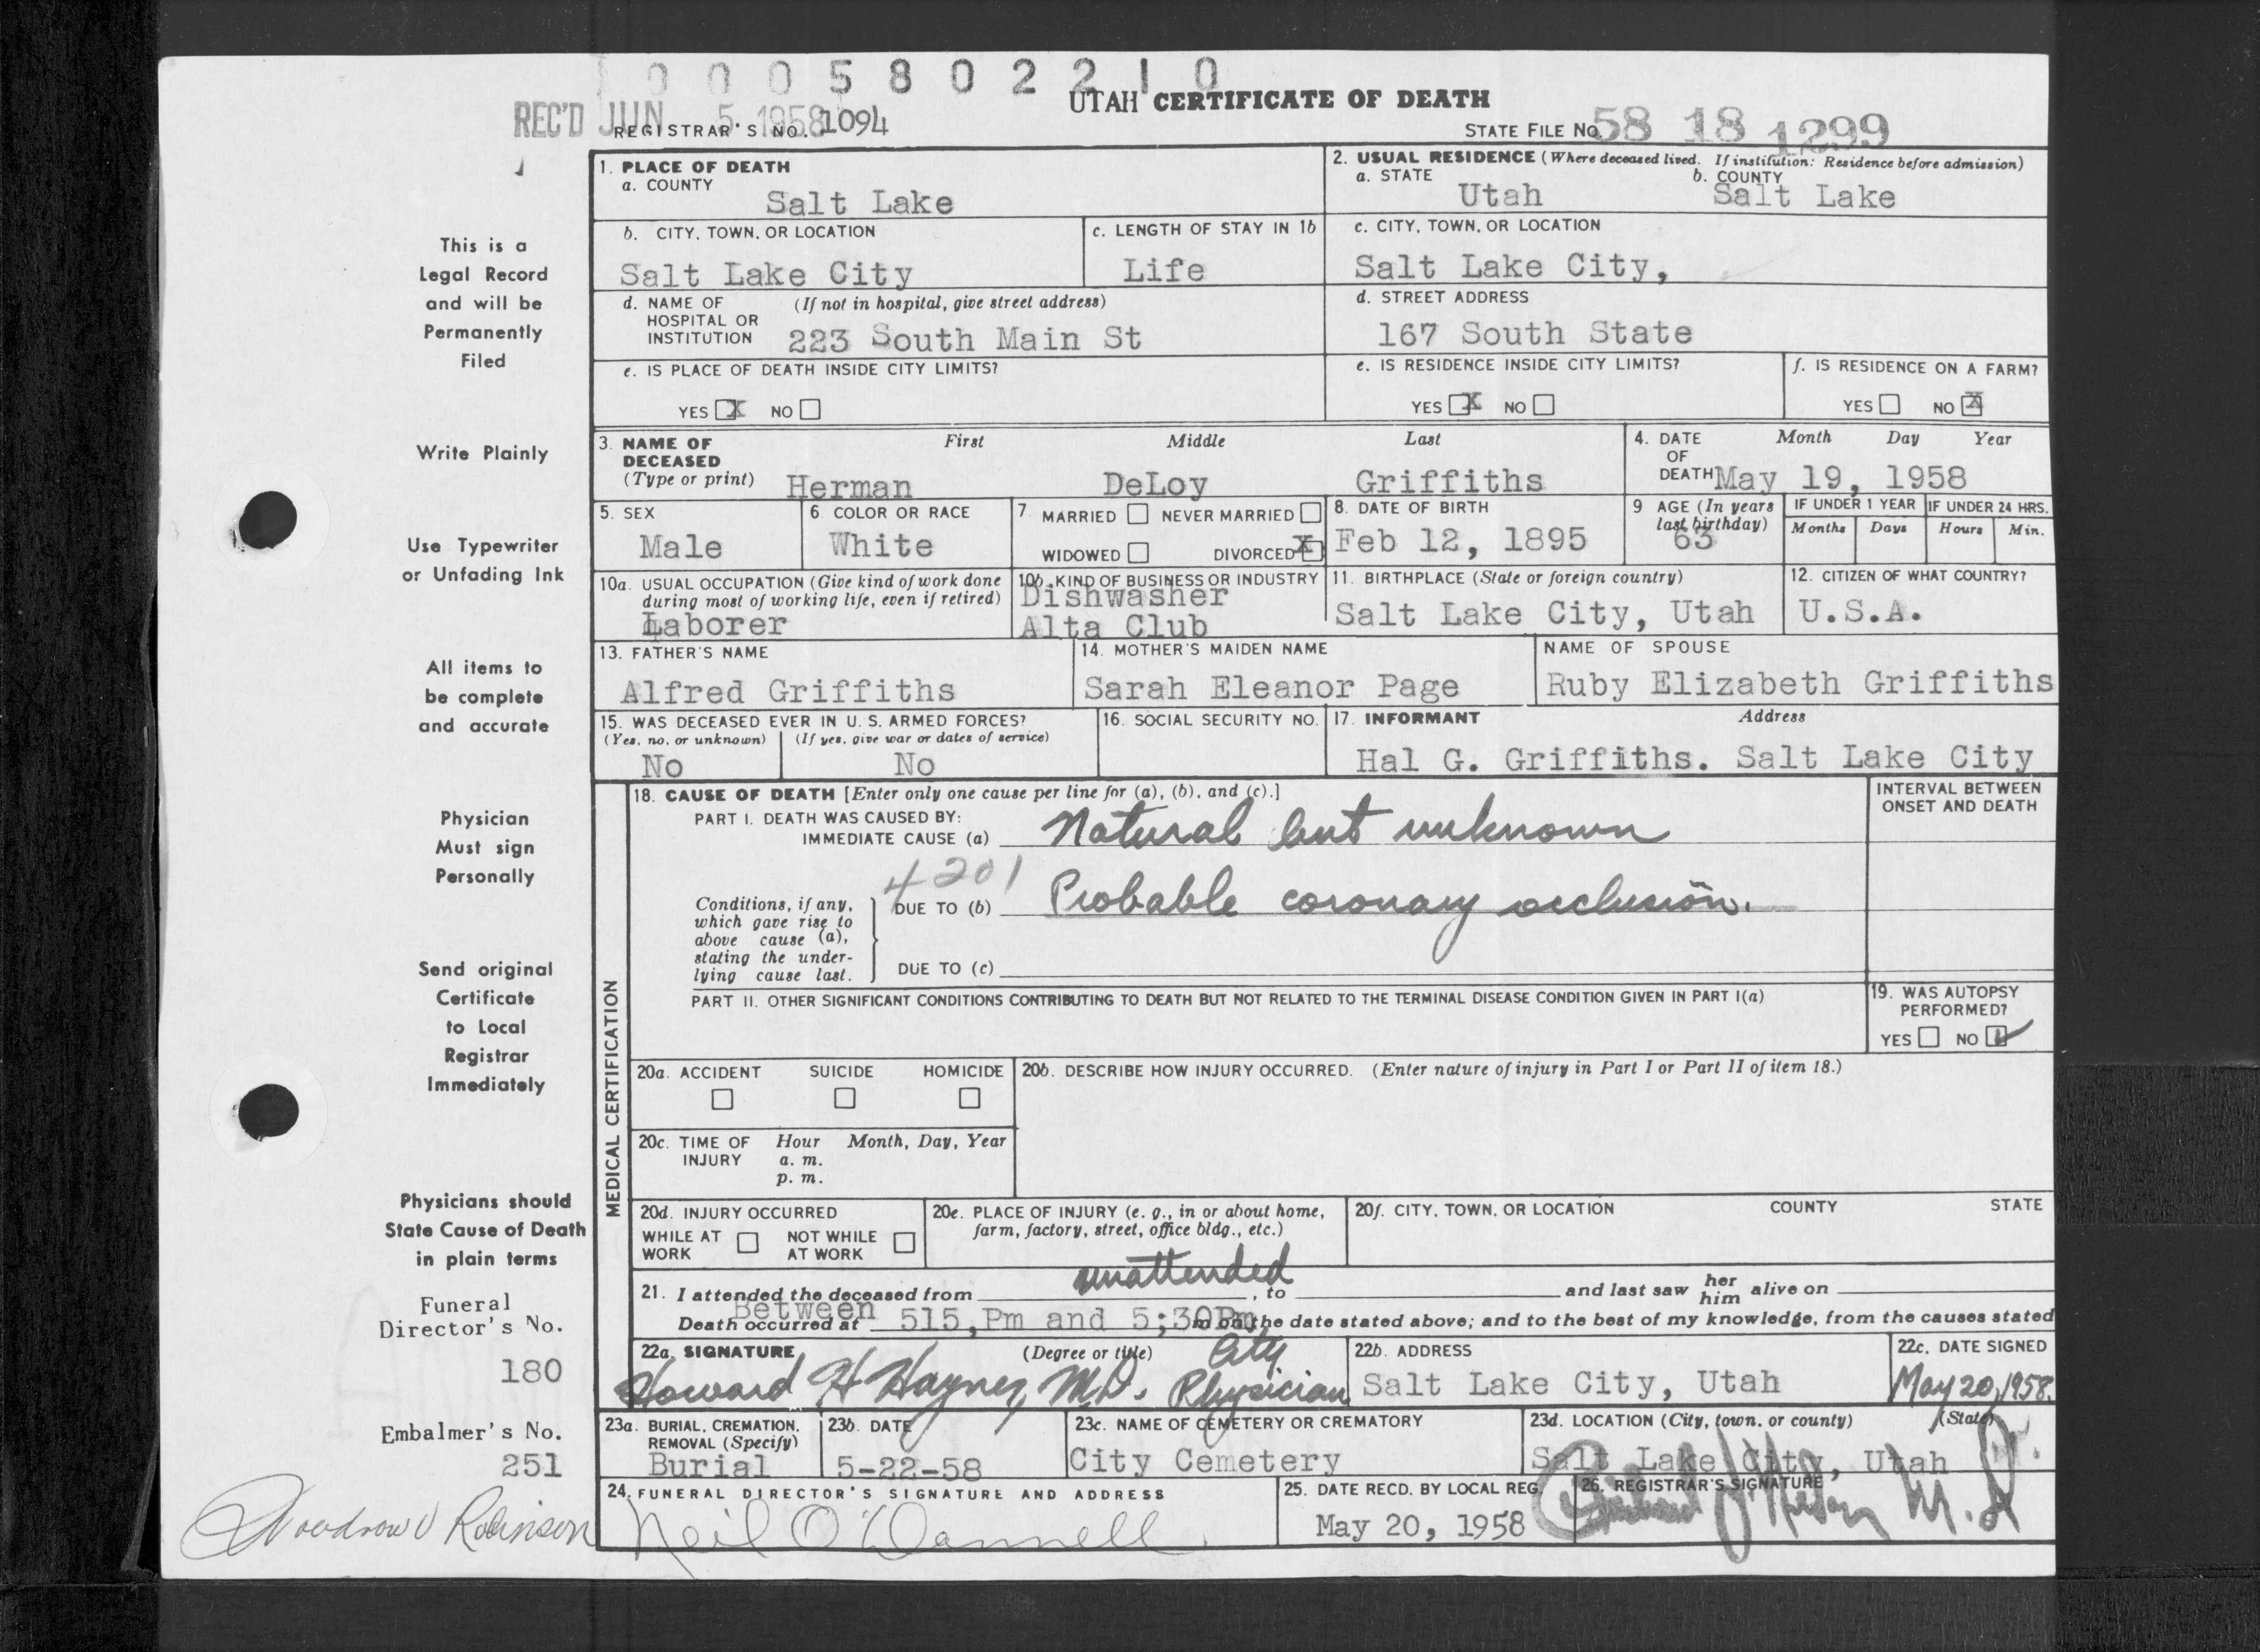 0 0 0 5 8 0 2 2 1 0
UTAH CERTIFICATE OF DEATH
REC'D JUN 5 1958
REGISTRAR'S NO. 1094
STATE FILE NO. 58 18 1299
1. PLACE OF DEATH
a. COUNTY
Salt Lake
2. USUAL RESIDENCE (Where deceased lived. If institution: Residence before admission)
a. STATE b. COUNTY
Utah Salt Lake
b. CITY, TOWN, OR LOCATION
Salt Lake City
c. LENGTH OF STAY IN 1b
Life
c. CITY, TOWN, OR LOCATION
Salt Lake City,
d. NAME OF HOSPITAL OR INSTITUTION (If not in hospital, give street address)
223 South Main St
d. STREET ADDRESS
167 South State
e. IS PLACE OF DEATH INSIDE CITY LIMITS?
YES X NO
e. IS RESIDENCE INSIDE CITY LIMITS?
YES X NO
f. IS RESIDENCE ON A FARM?
YES NO X
3. NAME OF DECEASED (Type or print)
First Middle Last
Herman DeLoy Griffiths
4. DATE OF DEATH Month Day Year
May 19, 1958
5. SEX
Male
6. COLOR OR RACE
White
7. MARRIED NEVER MARRIED
WIDOWED DIVORCED X
8. DATE OF BIRTH
Feb 12, 1895
9 AGE (In years last birthday)
63
IF UNDER 1 YEAR IF UNDER 24 HRS.
Months Days Hours Min.
10a. USUAL OCCUPATION (Give kind of work done during most of working life, even if retired)
Laborer
10b. KIND OF BUSINESS OR INDUSTRY
Dishwasher
Alta Club
11. BIRTHPLACE (State or foreign country)
Salt Lake City, Utah
12. CITIZEN OF WHAT COUNTRY?
U.S.A.
13. FATHER'S NAME
Alfred Griffiths
14. MOTHER'S MAIDEN NAME
Sarah Eleanor Page
NAME OF SPOUSE
Ruby Elizabeth Griffiths
15. WAS DECEASED EVER IN U. S. ARMED FORCES?
(Yes, no, or unknown) (If yes, give war or dates of service)
No No
16. SOCIAL SECURITY NO.
17. INFORMANT Address
Hal G. Griffiths. Salt Lake City
MEDICAL CERTIFICATION
18. CAUSE OF DEATH [Enter only one cause per line for (a), (b), and (c).]
PART I. DEATH WAS CAUSED BY:
IMMEDIATE CAUSE (a) Natural but unknown
4201
Conditions, if any, which gave rise to above cause (a), stating the underlying cause last.
DUE TO (b) Probable coronary occlusion.
DUE TO (c)
INTERVAL BETWEEN ONSET AND DEATH
PART II. OTHER SIGNIFICANT CONDITIONS CONTRIBUTING TO DEATH BUT NOT RELATED TO THE TERMINAL DISEASE CONDITION GIVEN IN PART I(a)
19. WAS AUTOPSY PERFORMED?
YES NO ✓
20a. ACCIDENT SUICIDE HOMICIDE
20b. DESCRIBE HOW INJURY OCCURRED. (Enter nature of injury in Part I or Part II of item 18.)
20c. TIME OF INJURY Hour Month, Day, Year
a. m.
p. m.
20d. INJURY OCCURRED
WHILE AT WORK NOT WHILE AT WORK
20e. PLACE OF INJURY (e. g., in or about home, farm, factory, street, office bldg., etc.)
20f. CITY, TOWN, OR LOCATION COUNTY STATE
21. I attended the deceased from unattended, to and last saw her him alive on
Between
Death occurred at 515,Pm and 5;30Pm, m on the date stated above; and to the best of my knowledge, from the causes stated
22a. SIGNATURE (Degree or title)
Howard H Haynes, M.D. City Physician
22b. ADDRESS
Salt Lake City, Utah
22c. DATE SIGNED
May 20, 1958.
23a. BURIAL, CREMATION, REMOVAL (Specify)
Burial
23b. DATE
5-22-58
23c. NAME OF CEMETERY OR CREMATORY
City Cemetery
23d. LOCATION (City, town, or county) (State)
Salt Lake City, Utah
24. FUNERAL DIRECTOR'S SIGNATURE AND ADDRESS
Neil O'Donnell
25. DATE RECD. BY LOCAL REG.
May 20, 1958
26. REGISTRAR'S SIGNATURE
M.D.
This is a
Legal Record
and will be
Permanently
Filed
Write Plainly
Use Typewriter
or Unfading Ink
All items to
be complete
and accurate
Physician
Must sign
Personally
Send original
Certificate
to Local
Registrar
Immediately
Physicians should
State Cause of Death
in plain terms
Funeral
Director's No.
180
Embalmer's No.
251
Woodrow Robinson